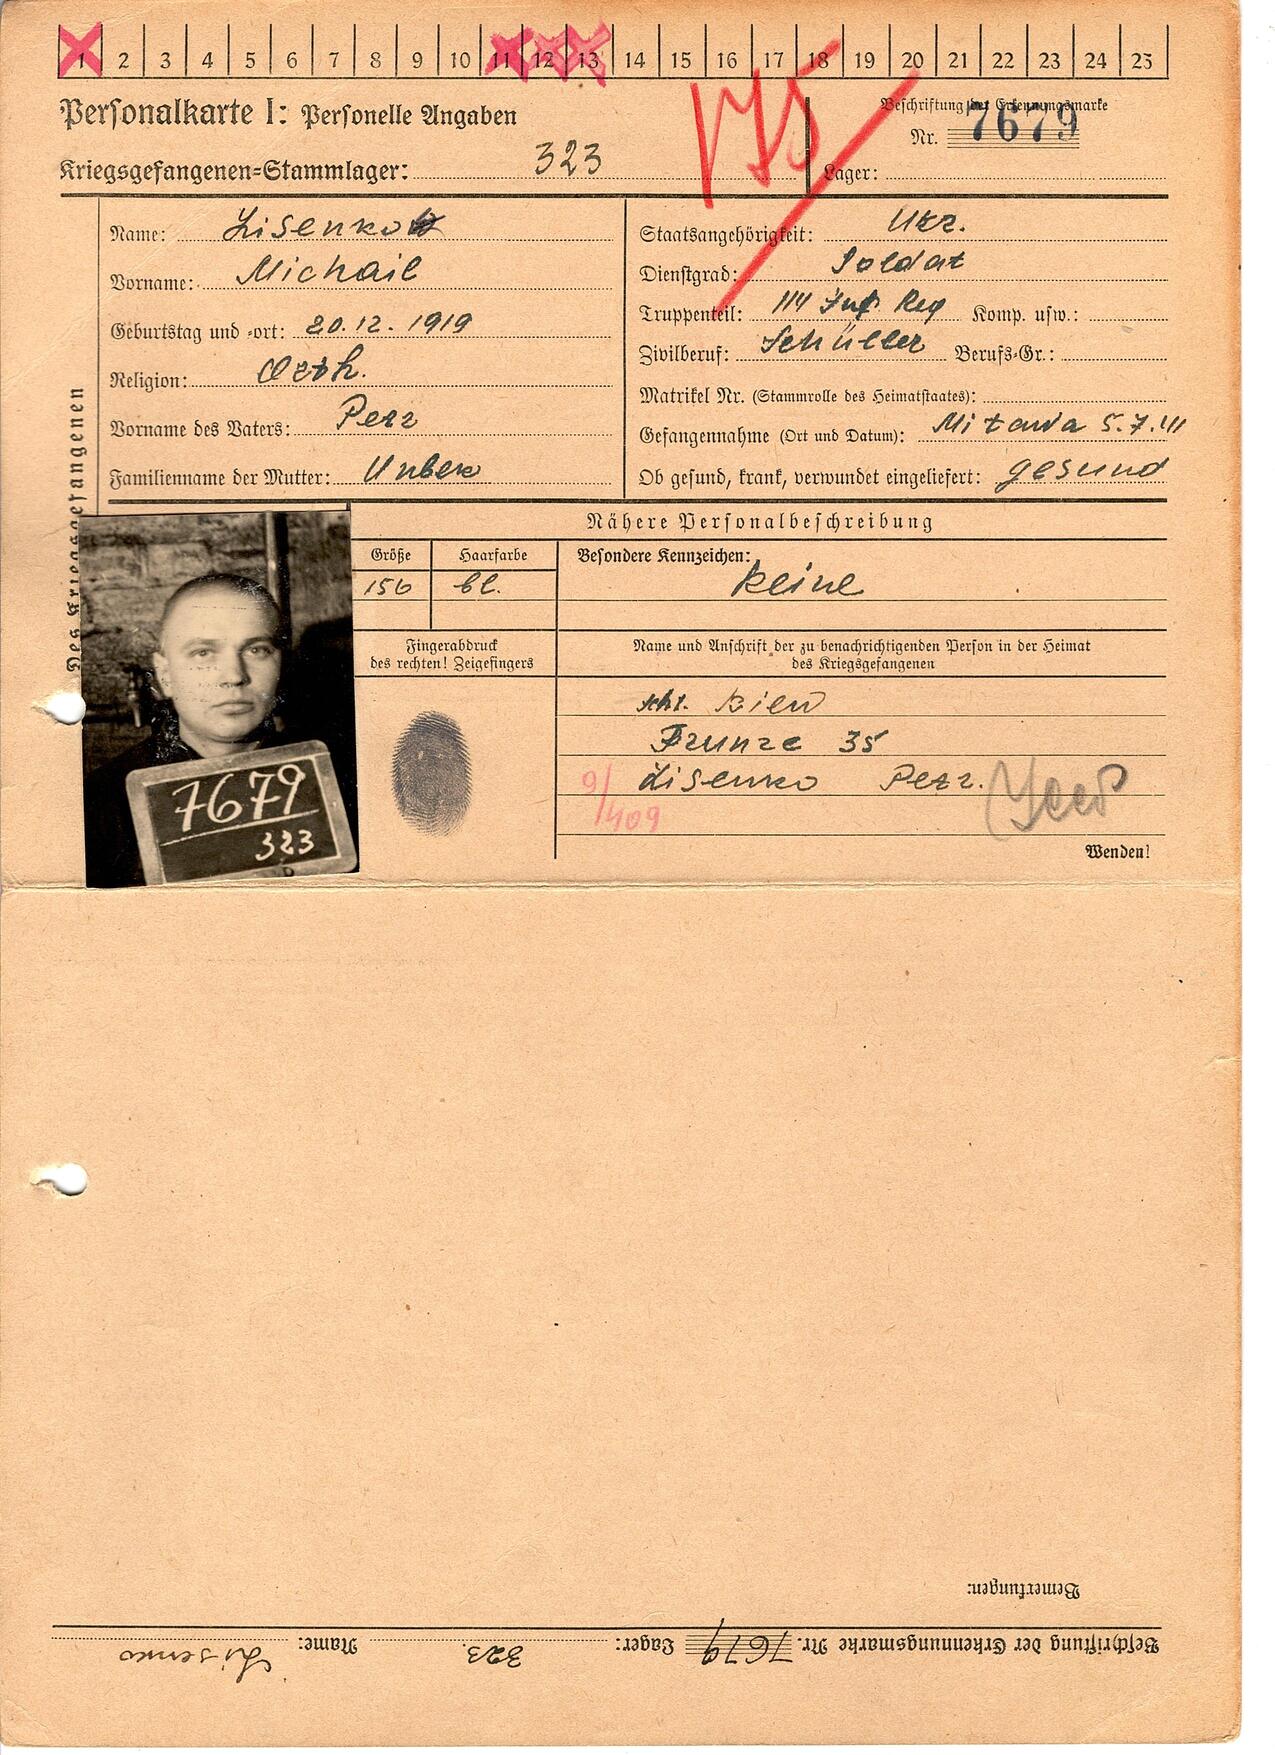 1 2 3 4 5 6 7 8 9 10 11 12 13 14 15 16 17 18 19 20 21 22 23 24 25
Personalkarte I: Personelle Angaben
Kriegsgefangenen-Stammlager: 323
175
Beschriftung der Erkennungsmarke
Nr. 7679
Lager:
Des Kriegsgefangenen
Name: Lisenko
Vorname: Michail
Geburtstag und -ort: 20.12.1919
Religion: Orth.
Vorname des Vaters: Petr
Familienname der Mutter:
Staatsangehörigkeit: Ukr.
Dienstgrad: Soldat
Truppenteil: 114 Inf. Reg Komp. usw.:
Zivilberuf: Schüller Berufs-Gr.:
Matrikel Nr. (Stammrolle des Heimatstaates):
Gefangennahme (Ort und Datum): Mitawa 5.7.41
Ob gesund, krank, verwundet eingeliefert: gesund
Nähere Personalbeschreibung
Größe Haarfarbe Besondere Kennzeichen:
156 bl. keine
Fingerabdruck
des rechten! Zeigefingers
Name und Anschrift der zu benachrichtigenden Person in der Heimat
des Kriegsgefangenen
Kiew
Frunze 35
Lisenko Petr.
9/409
7679
323
Wenden!
Bemerkungen:
Beschriftung der Erkennungsmarke Nr. 7679 Lager: 323. Name: Lisenko